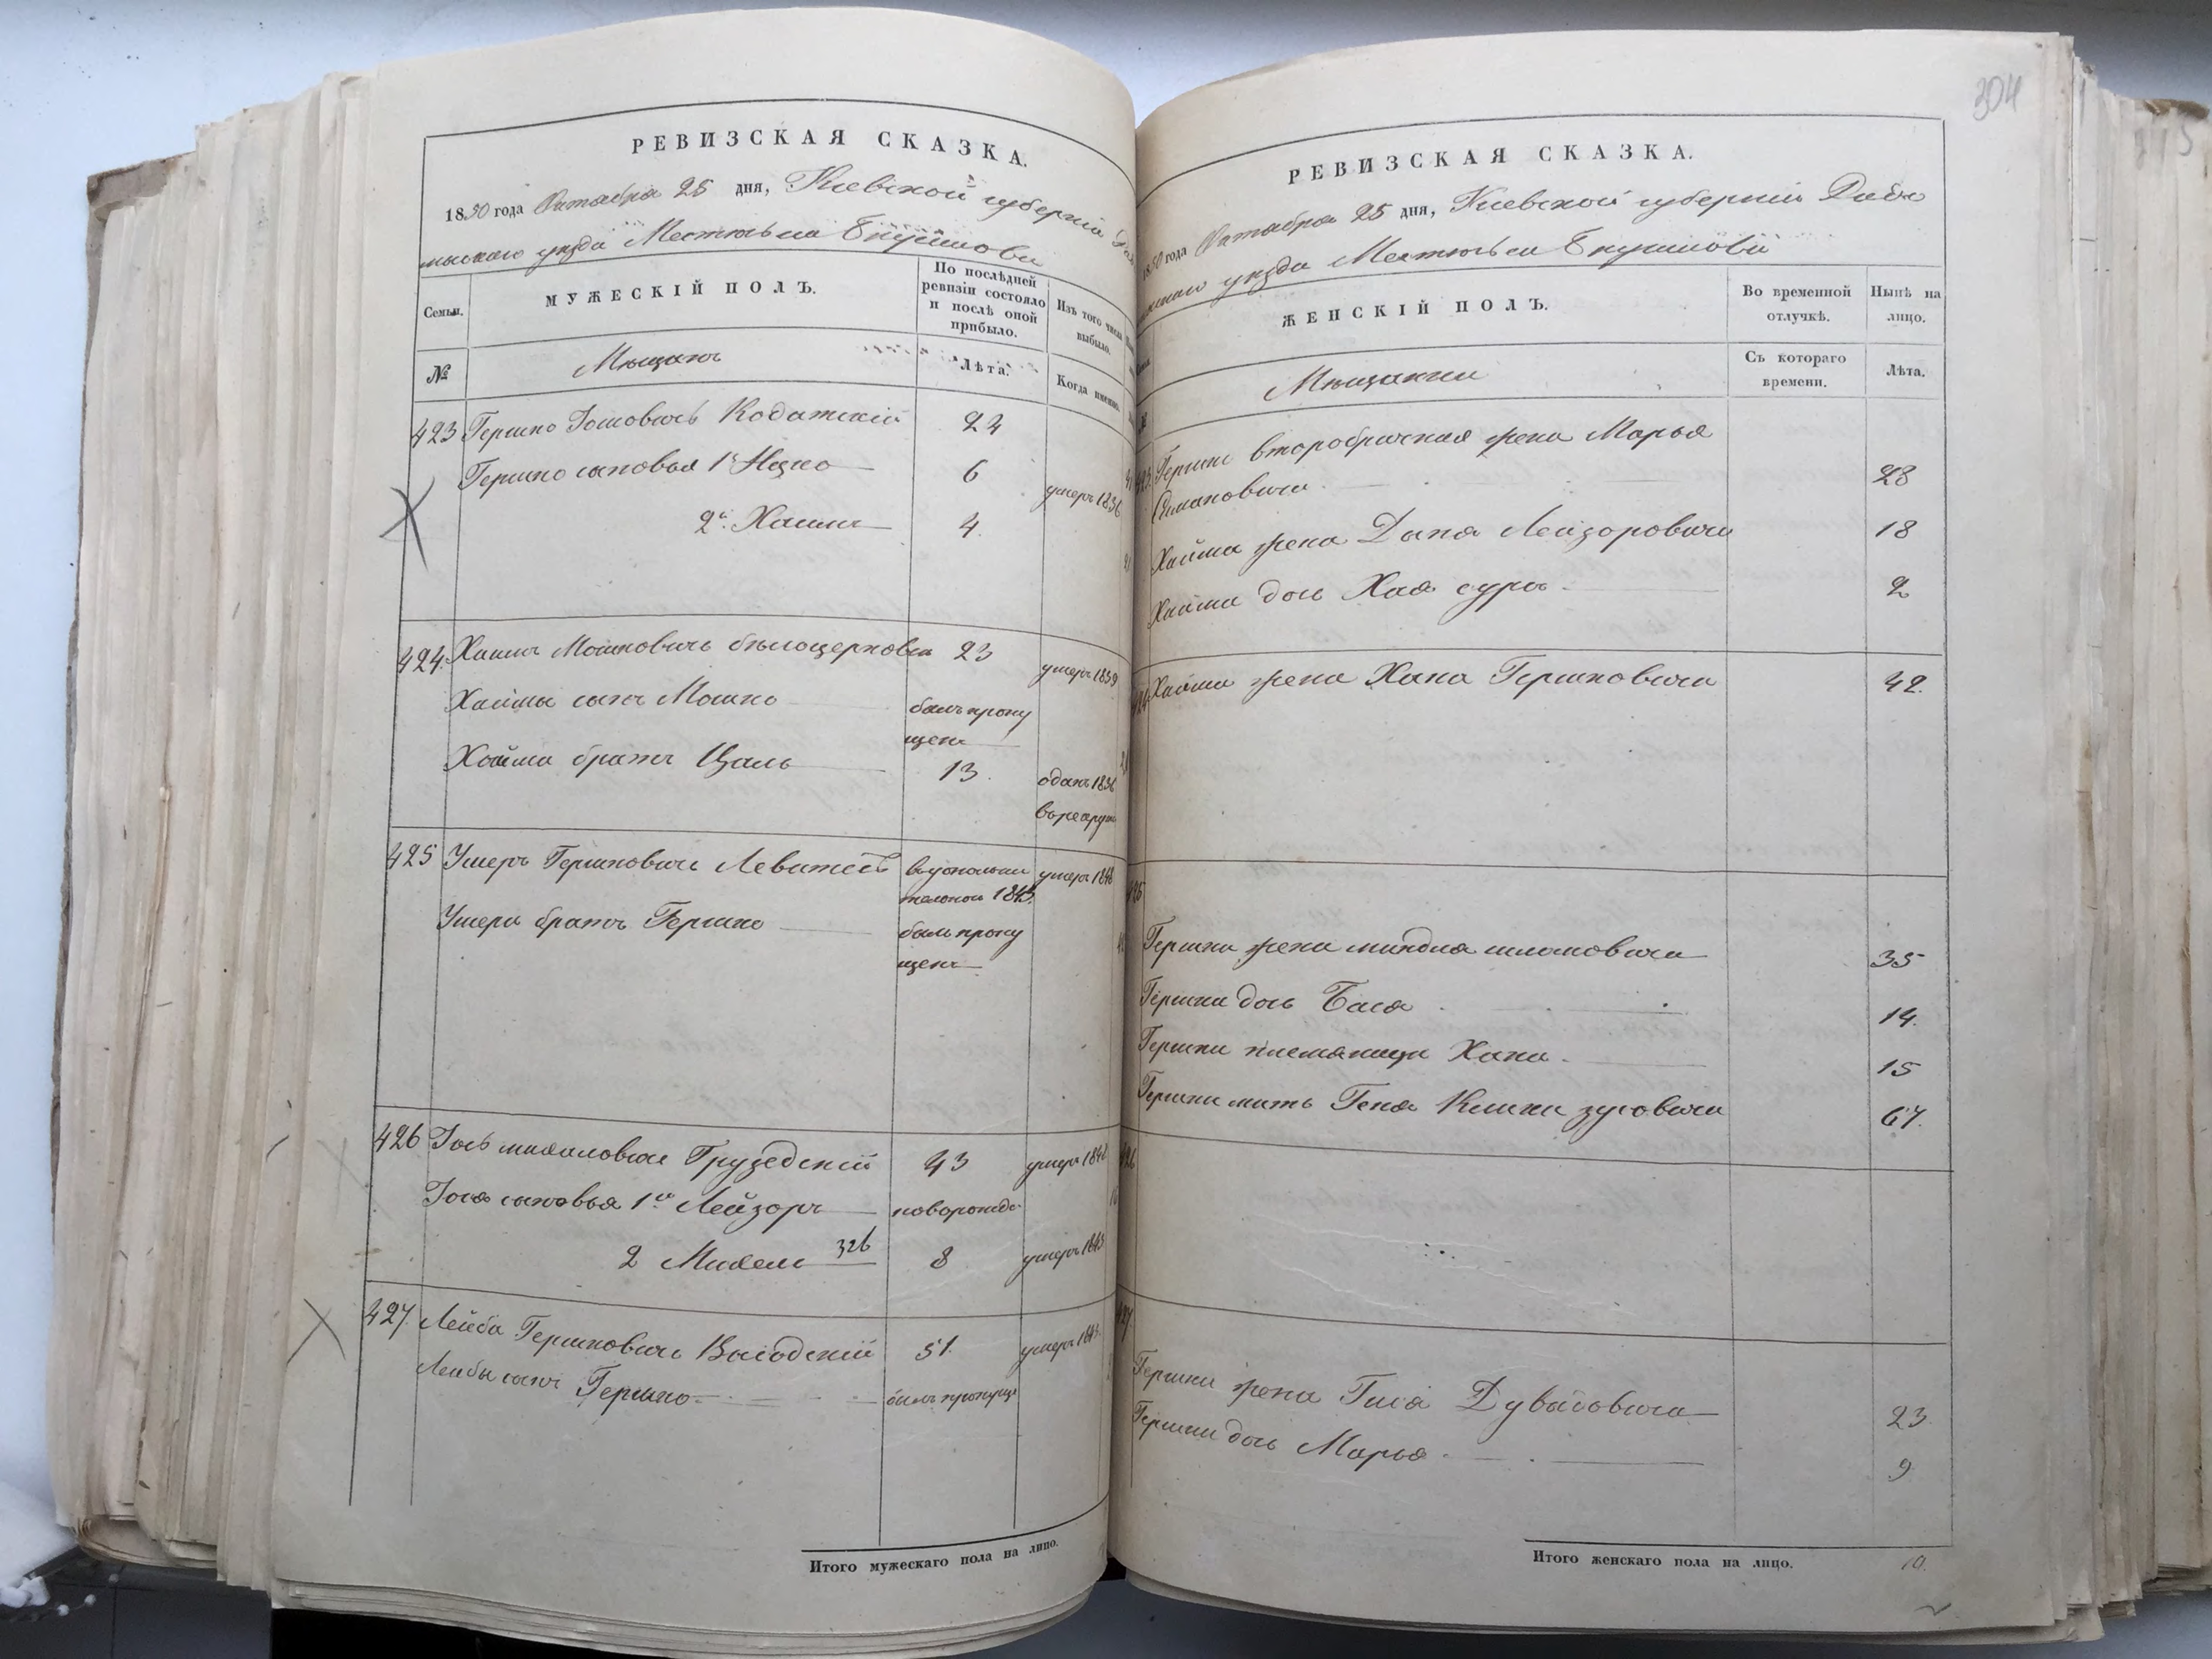 304
РЕВИЗСКАЯ СКАЗКА.
1850 года Октября 25 дня, Киевской губерніи
мысскаго уезда Местечка
Семьи.
МУЖЕСКІЙ ПОЛЪ.
По послѣдней
ревизіи состояло
и послѣ оной
прибыло.
Изъ того числа
выбыло.
№
Мещанъ
Лѣта.
Когда именно.
423 Гершко Іосиовичь Кодатскій 24
Гершко сыновья 1й Ицко 6 умеръ 1836
2й Хаимъ 4
424 Хаимъ Мошковичь белоцерковск 23 умеръ 1839
Хаимы сынъ Мошко былъ пропу
щенъ
Хайма братъ Цаль 13 оданъ 1836
425 Ушеръ Гершковичь 1843 умеръ 1848
Ушера братъ Гершко былъ пропу
щенъ
426 Іось михаловичь Грузедскій 43 умеръ 1848
Іося сыновья 1й Лейзоръ новорожде
2 Михель 326 8 умеръ 1843
427 Лейба Гершковичь Высодскій 51 умеръ
Лейбы сынъ Гершко былъ пропущ
Итого мужескаго пола на лицо.
РЕВИЗСКАЯ СКАЗКА.
1850 года Октября 25 дня, Киевской губерніи Радо
мысскаго уезда Местечка
ЖЕНСКІЙ ПОЛЪ.
Во временной
отлучкѣ.
Нынѣ на
лицо.
Мещанки
Съ котораго
времени.
Лѣта.
423 Гершки второбрачная жена Марья
28
Хайма жена Дына Лейзоровича 18
Хайма дочь Хая сура 2
424 Хаима жена Хана Гершковича 42
425
Гершки жена миндля шломовича 35
Гершки дочь Бася 14
Гершки племяница Хана 15
Гершки мать Геня 67
426
427
Гершки жена Гися Дувыдовича 23
Гершки дочь Марья 9
Итого женскаго пола на лицо. 10